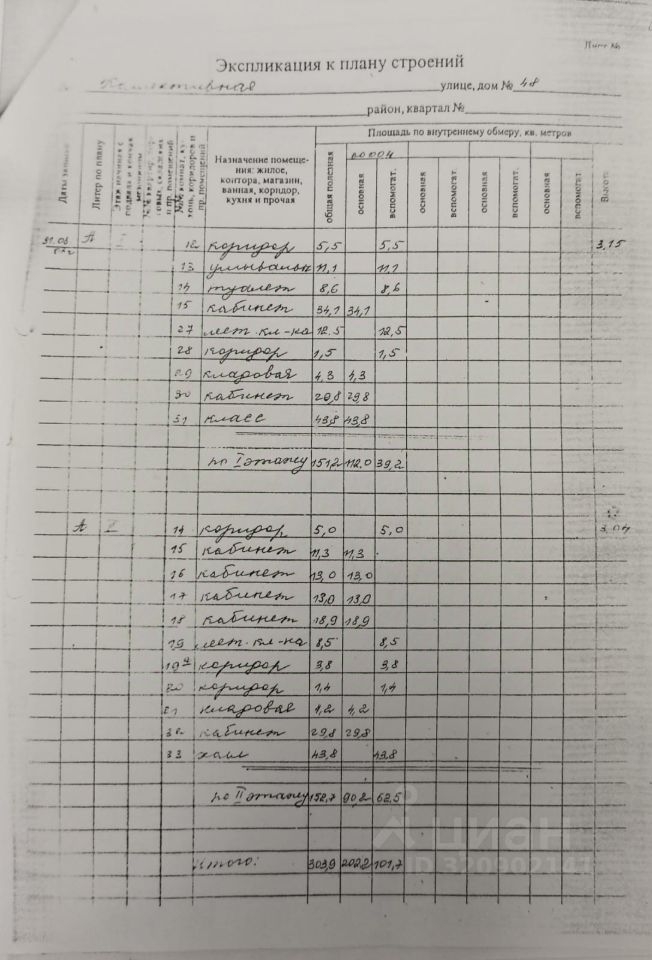 Лист №
Экспликация к плану строений
Коллективная улице, дом № 48
район, квартал №
Даты записи
Литер по плану
Назначение помеще-
ния: жилое,
контора, магазин,
ванная, коридор,
кухня и прочая
Площадь по внутреннему обмеру, кв. метров
общая полезная
основная
вспомогат.
основная
вспомогат.
основная
вспомогат.
основная
вспомогат.
Высота
А 12 коридор 5,5 5,5 3,15
13 умывальн 11,1 11,1
14 туалет 8,6 8,6
15 кабинет 34,1 34,1
27 лест. кл-ка 12.5 12,5
28 коридор 1,5 1,5
29 кладовая 4,3 4,3
30 кабинет 29,8 29,8
31 класс 43,8 43,8
по I этажу 151,2 112.0 39,2
А II 14 коридор 5,0 5,0 3,04
15 кабинет 11,3 11,3
16 кабинет 13,0 13,0
17 кабинет 13,0 13,0
18 кабинет 18,9 18,9
19 лест. кл-ка 8,5 8,5
19а коридор 3,8 3,8
20 коридор 1,4 1,4
21 кладовая 4,2 4,2
32 кабинет 29,8 29,8
33 холл 43,8 43,8
по II этажу 152,7 90,2 62,5
Итого: 303,9 202,2 101,7
ЦИАН